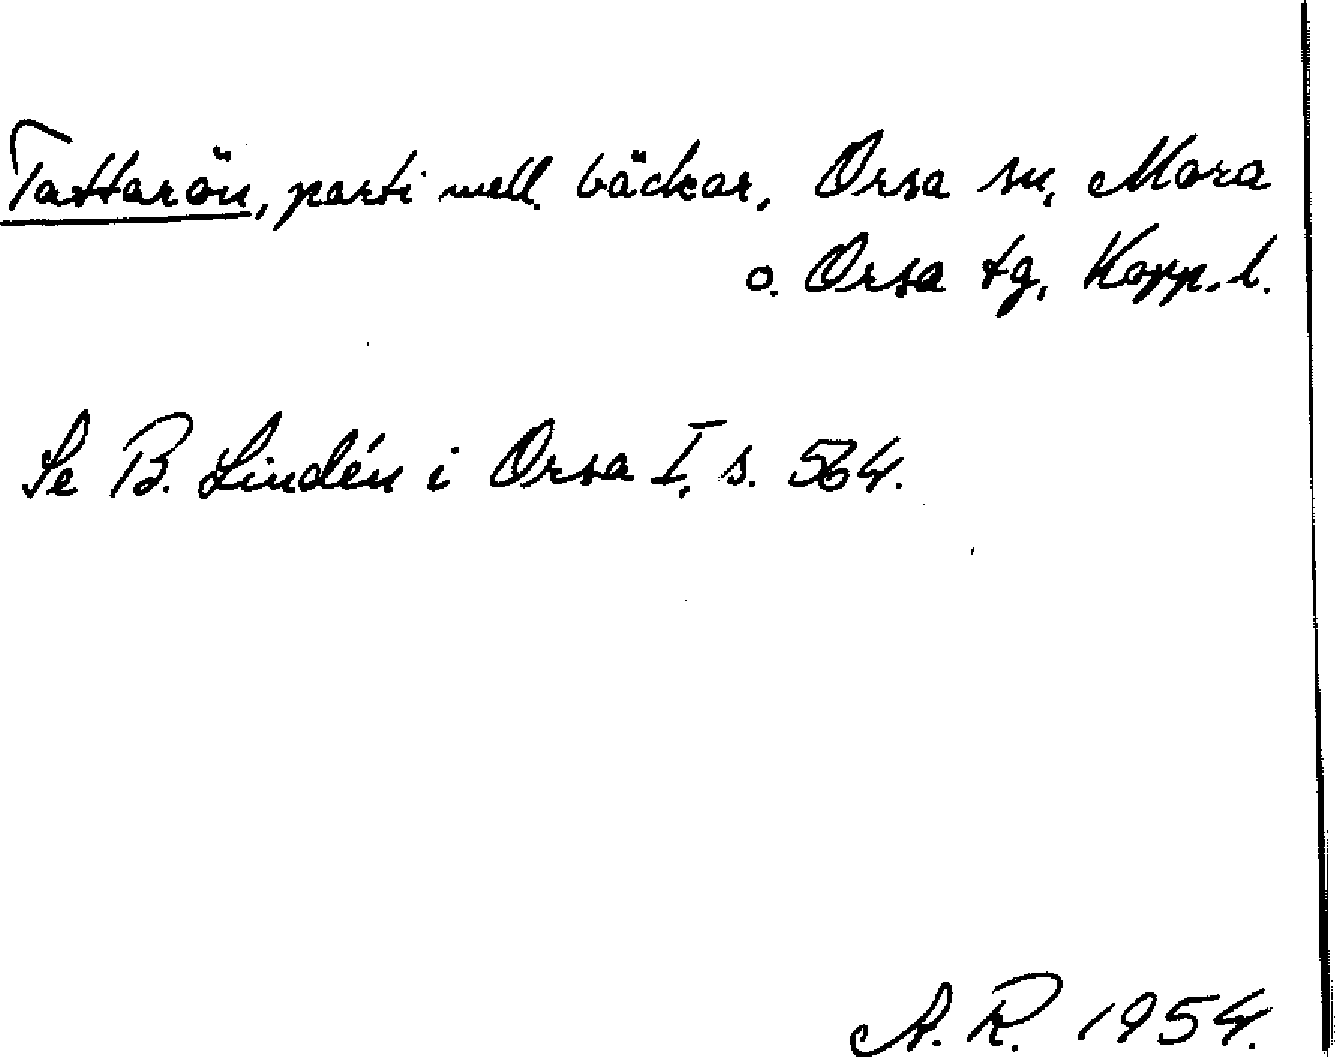 Tattarön, parti mell. bäckar, Orsa sn, Mora
o. Orsa tg, Kopp. l.
Se B. Lindén i Orsa I, s. 564.
A. R. 1954.